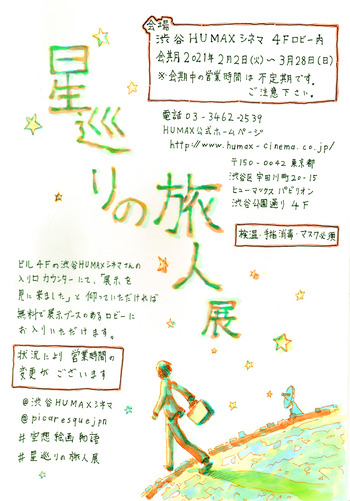 星巡りの旅人展
会場
渋谷HUMAXシネマ 4Fロビー内
会期 2021年2月2日(火)〜3月28日(日)
※会期中の営業時間は不定期です。
ご注意下さい。
電話03-3462-2539
HUMAX公式ホームページ
http://www.humax-cinema.co.jp/
〒150-0042 東京都
渋谷区宇田川町20-15
ヒューマックスパビリオン
渋谷公園通り 4F
検温・手指消毒・マスク必須
ビル4Fの渋谷HUMAXシネマさんの
入り口カウンターにて、「展示を
見に来ました」と仰っていただければ
無料で展示ブースのあるロビーに
お入りいただけます。
状況により営業時間の
変更がございます
@渋谷HUMAXシネマ
@picaresquejpn
#空想絵画物語
#星巡りの旅人展